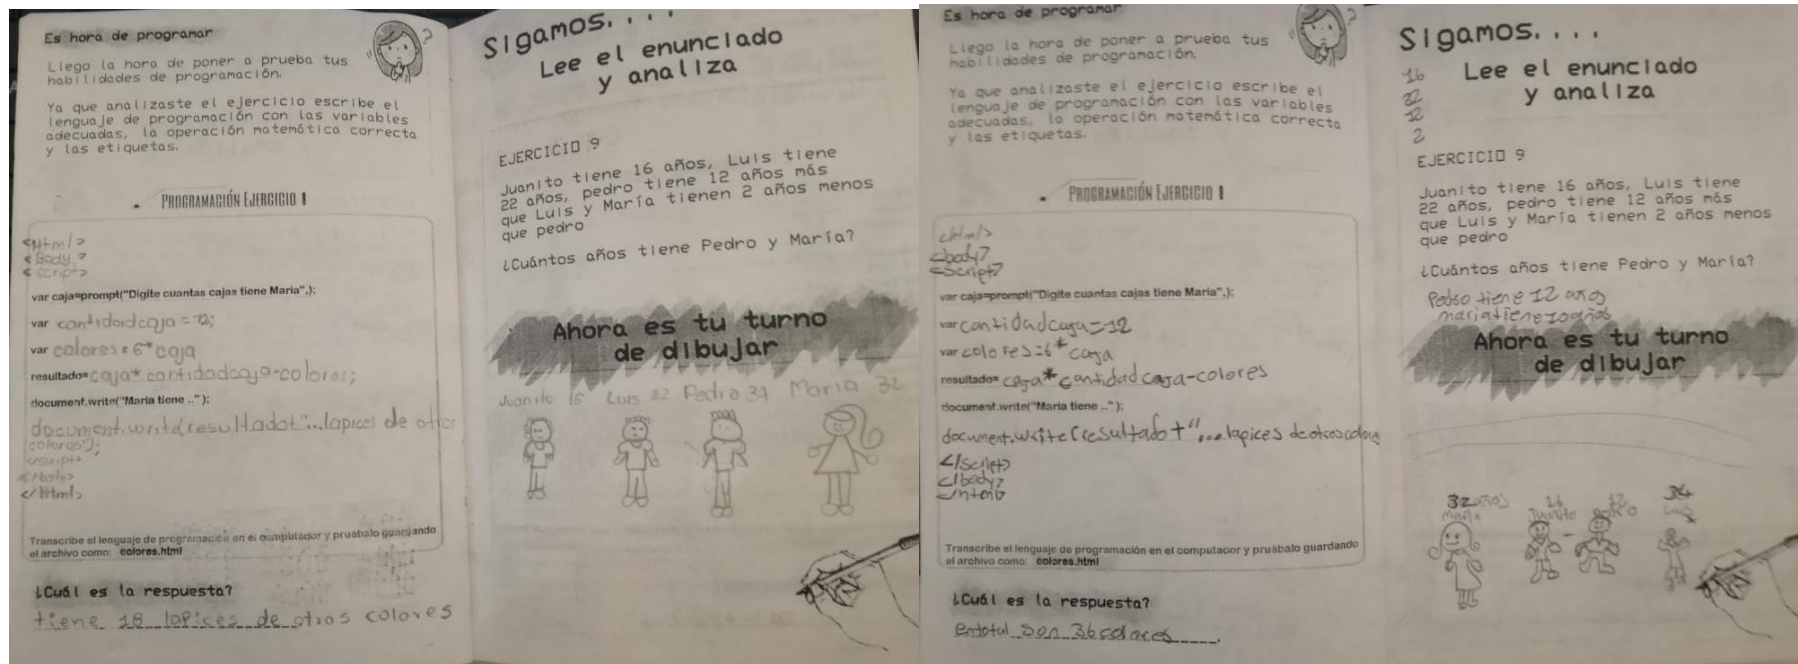 Es hora de programar
Llego la hora de poner a prueba tus
habilidades de programación.
Ya que analizaste el ejercicio escribe el
lenguaje de programación con las variables
adecuadas, la operación matemática correcta
y las etiquetas.
PROGRAMACIÓN EJERCICIO 8
<Html>
<Body>
<script>
var caja=prompt("Digite cuantas cajas tiene Maria",);
var cantidadcaja = 12;
var colores = 6*caja
resultado= caja* cantidadcaja-colores;
document.write("Maria tiene .." );
document.write(resultado+"...lapices de otros
colores");
</script>
</body>
</Html>
Transcribe el lenguaje de programación en el computador y pruébalo guardando
el archivo como: colores.html
¿Cuál es la respuesta?
tiene 18 lapices de otros colores
Sigamos....
Lee el enunciado
y analiza
EJERCICIO 9
Juanito tiene 16 años, Luis tiene
22 años, pedro tiene 12 años más
que Luis y María tienen 2 años menos
que pedro
¿Cuántos años tiene Pedro y María?
Ahora es tu turno
de dibujar
Juanito 16 Luis 22 Pedro 34 Maria 32
Es hora de programar
Llego la hora de poner a prueba tus
habilidades de programación.
Ya que analizaste el ejercicio escribe el
lenguaje de programación con las variables
adecuadas, la operación matemática correcta
y las etiquetas.
PROGRAMACIÓN EJERCICIO 8
<html>
<body>
<script>
var caja=prompt("Digite cuantas cajas tiene Maria",);
var cantidadcaja=12
var colores=6* caja
resultado= caja* cantidadcaja-colores
document.write("Maria tiene .." );
document.write(resultado+"...lapices de otros colores
</script>
</body>
</html>
Transcribe el lenguaje de programación en el computador y pruébalo guardando
el archivo como: colores.html
¿Cuál es la respuesta?
entotal son 36 colores
Sigamos....
Lee el enunciado
y analiza
16
22
12
2
EJERCICIO 9
Juanito tiene 16 años, Luis tiene
22 años, pedro tiene 12 años más
que Luis y María tienen 2 años menos
que pedro
¿Cuántos años tiene Pedro y María?
Pedro tiene 12 años
maria tiene 10 años
Ahora es tu turno
de dibujar
32 años 16 12 34
maria Juanito